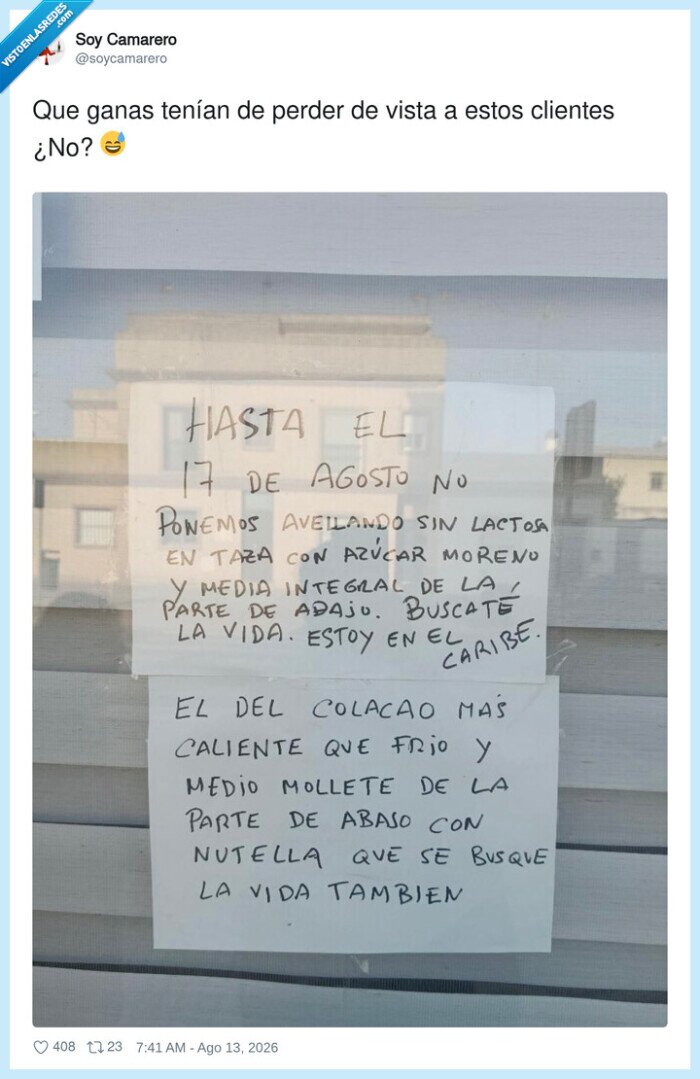 VISTOENLASREDES
.com
Soy Camarero
@soycamarero
Que ganas tenían de perder de vista a estos clientes
¿No? 😅
HASTA EL
17 DE AGOSTO NO
PONEMOS AVELLANDO SIN LACTOSA
EN TAZA CON AZÚCAR MORENO
Y MEDIA INTEGRAL DE LA
PARTE DE ABAJO. BUSCATÉ
LA VIDA. ESTOY EN EL
CARIBE.
EL DEL COLACAO MÁS
CALIENTE QUE FRIO Y
MEDIO MOLLETE DE LA
PARTE DE ABAJO CON
NUTELLA QUE SE BUSQUE
LA VIDA TAMBIEN
408 23 7:41 AM - Ago 13, 2026